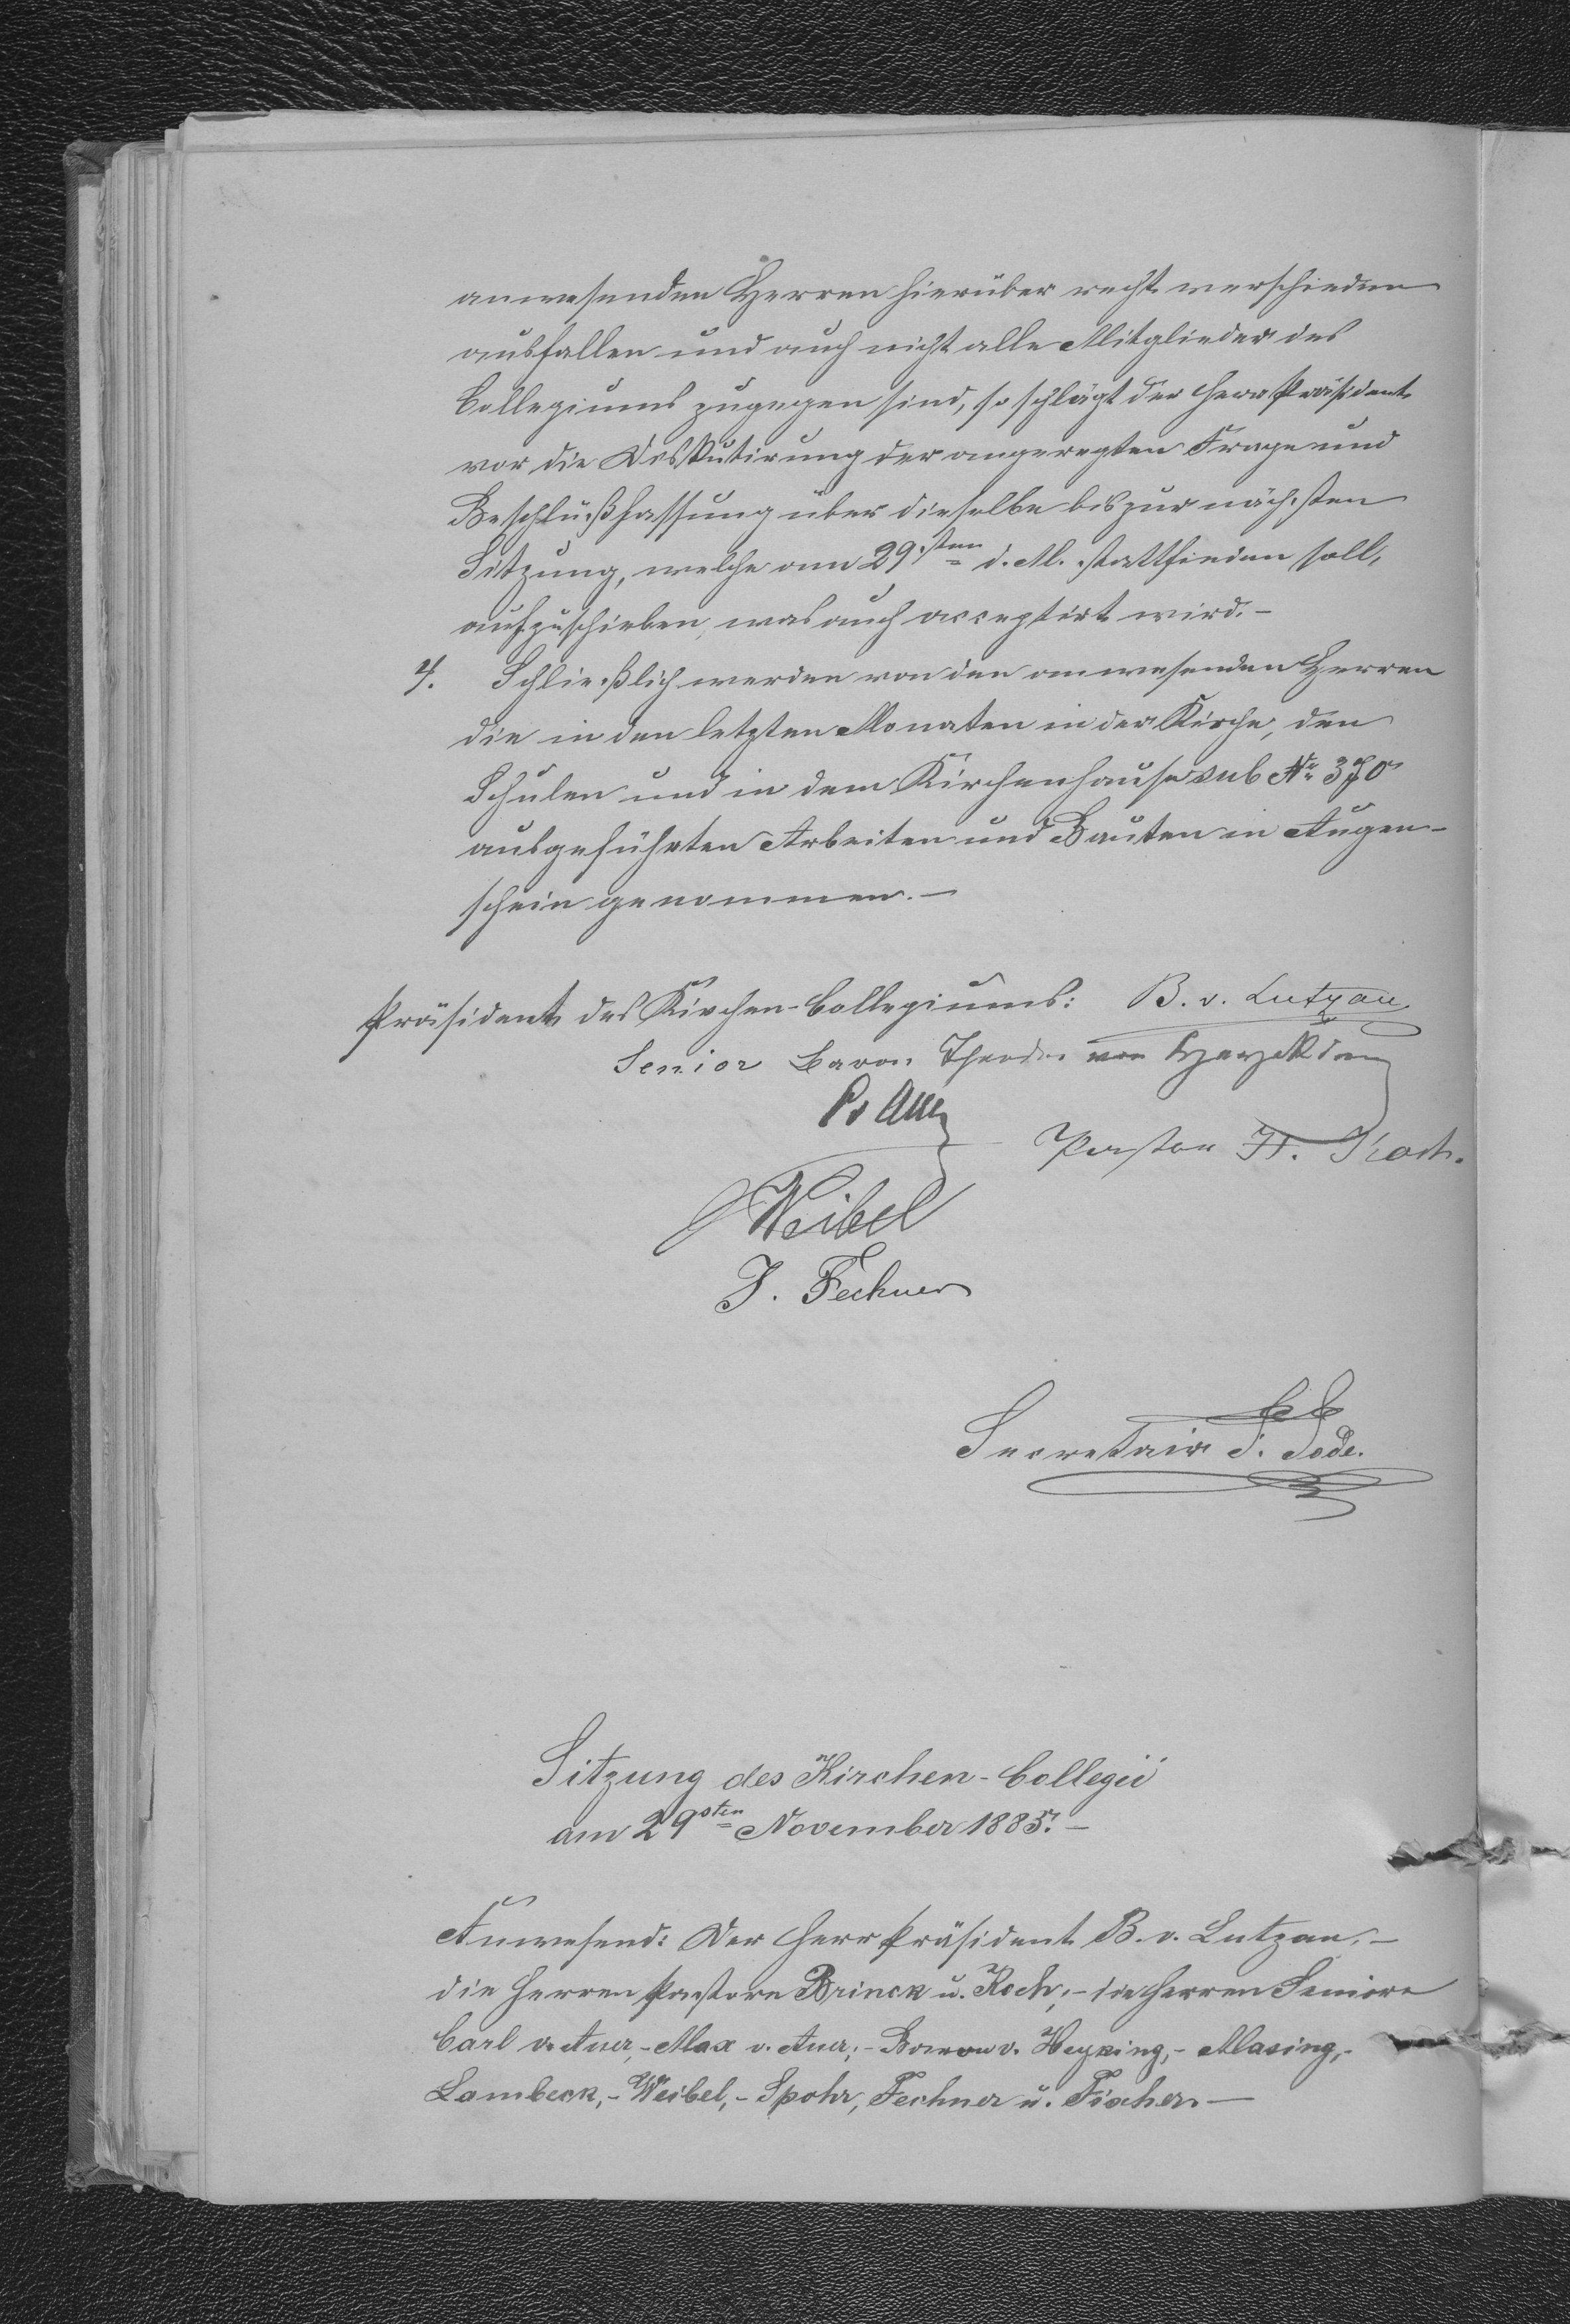 anwesenden Herren hierüber recht verschieden
ausfallen und auch nicht alle Mitglieder des
Collegiums zugegen sind, so schlägt der Herr Präsident
vor die Diskutirung der angeregten Frage und
Beschlußfassung über dieselbe bis zur nächsten
Sitzung, welche am 29sten d. M. stattfinden soll,
aufzuschieben, was auch acceptirt wird. –
4. Schließlich werden von den anwesenden Herren
die in den letzten Monaten in der Kirche, den
Schulen und in dem Kirchenhause sub № 370
ausgeführten Arbeiten und Bauten in Augen-
schein genommen. –
Präsident des Kirchen-Collegiums: B. v. Lutzau
Senior Baron Theodor von
Pastor H. Koch.
Weibel
J. Fechner
Secretair
Sitzung des Kirchen-Collegii
am 29sten November 1885. –
Anwesend: Der Herr Präsident B. v. Lutzau, –
die Herren Pastore Brinck u. Koch; – die Herren Seniore
Carl v. Auer, – Max v. Auer; – Baron v. Heyking, – Masing, –
Lambeck, – Weibel, – Spohr, Fechner u. Fischer. –